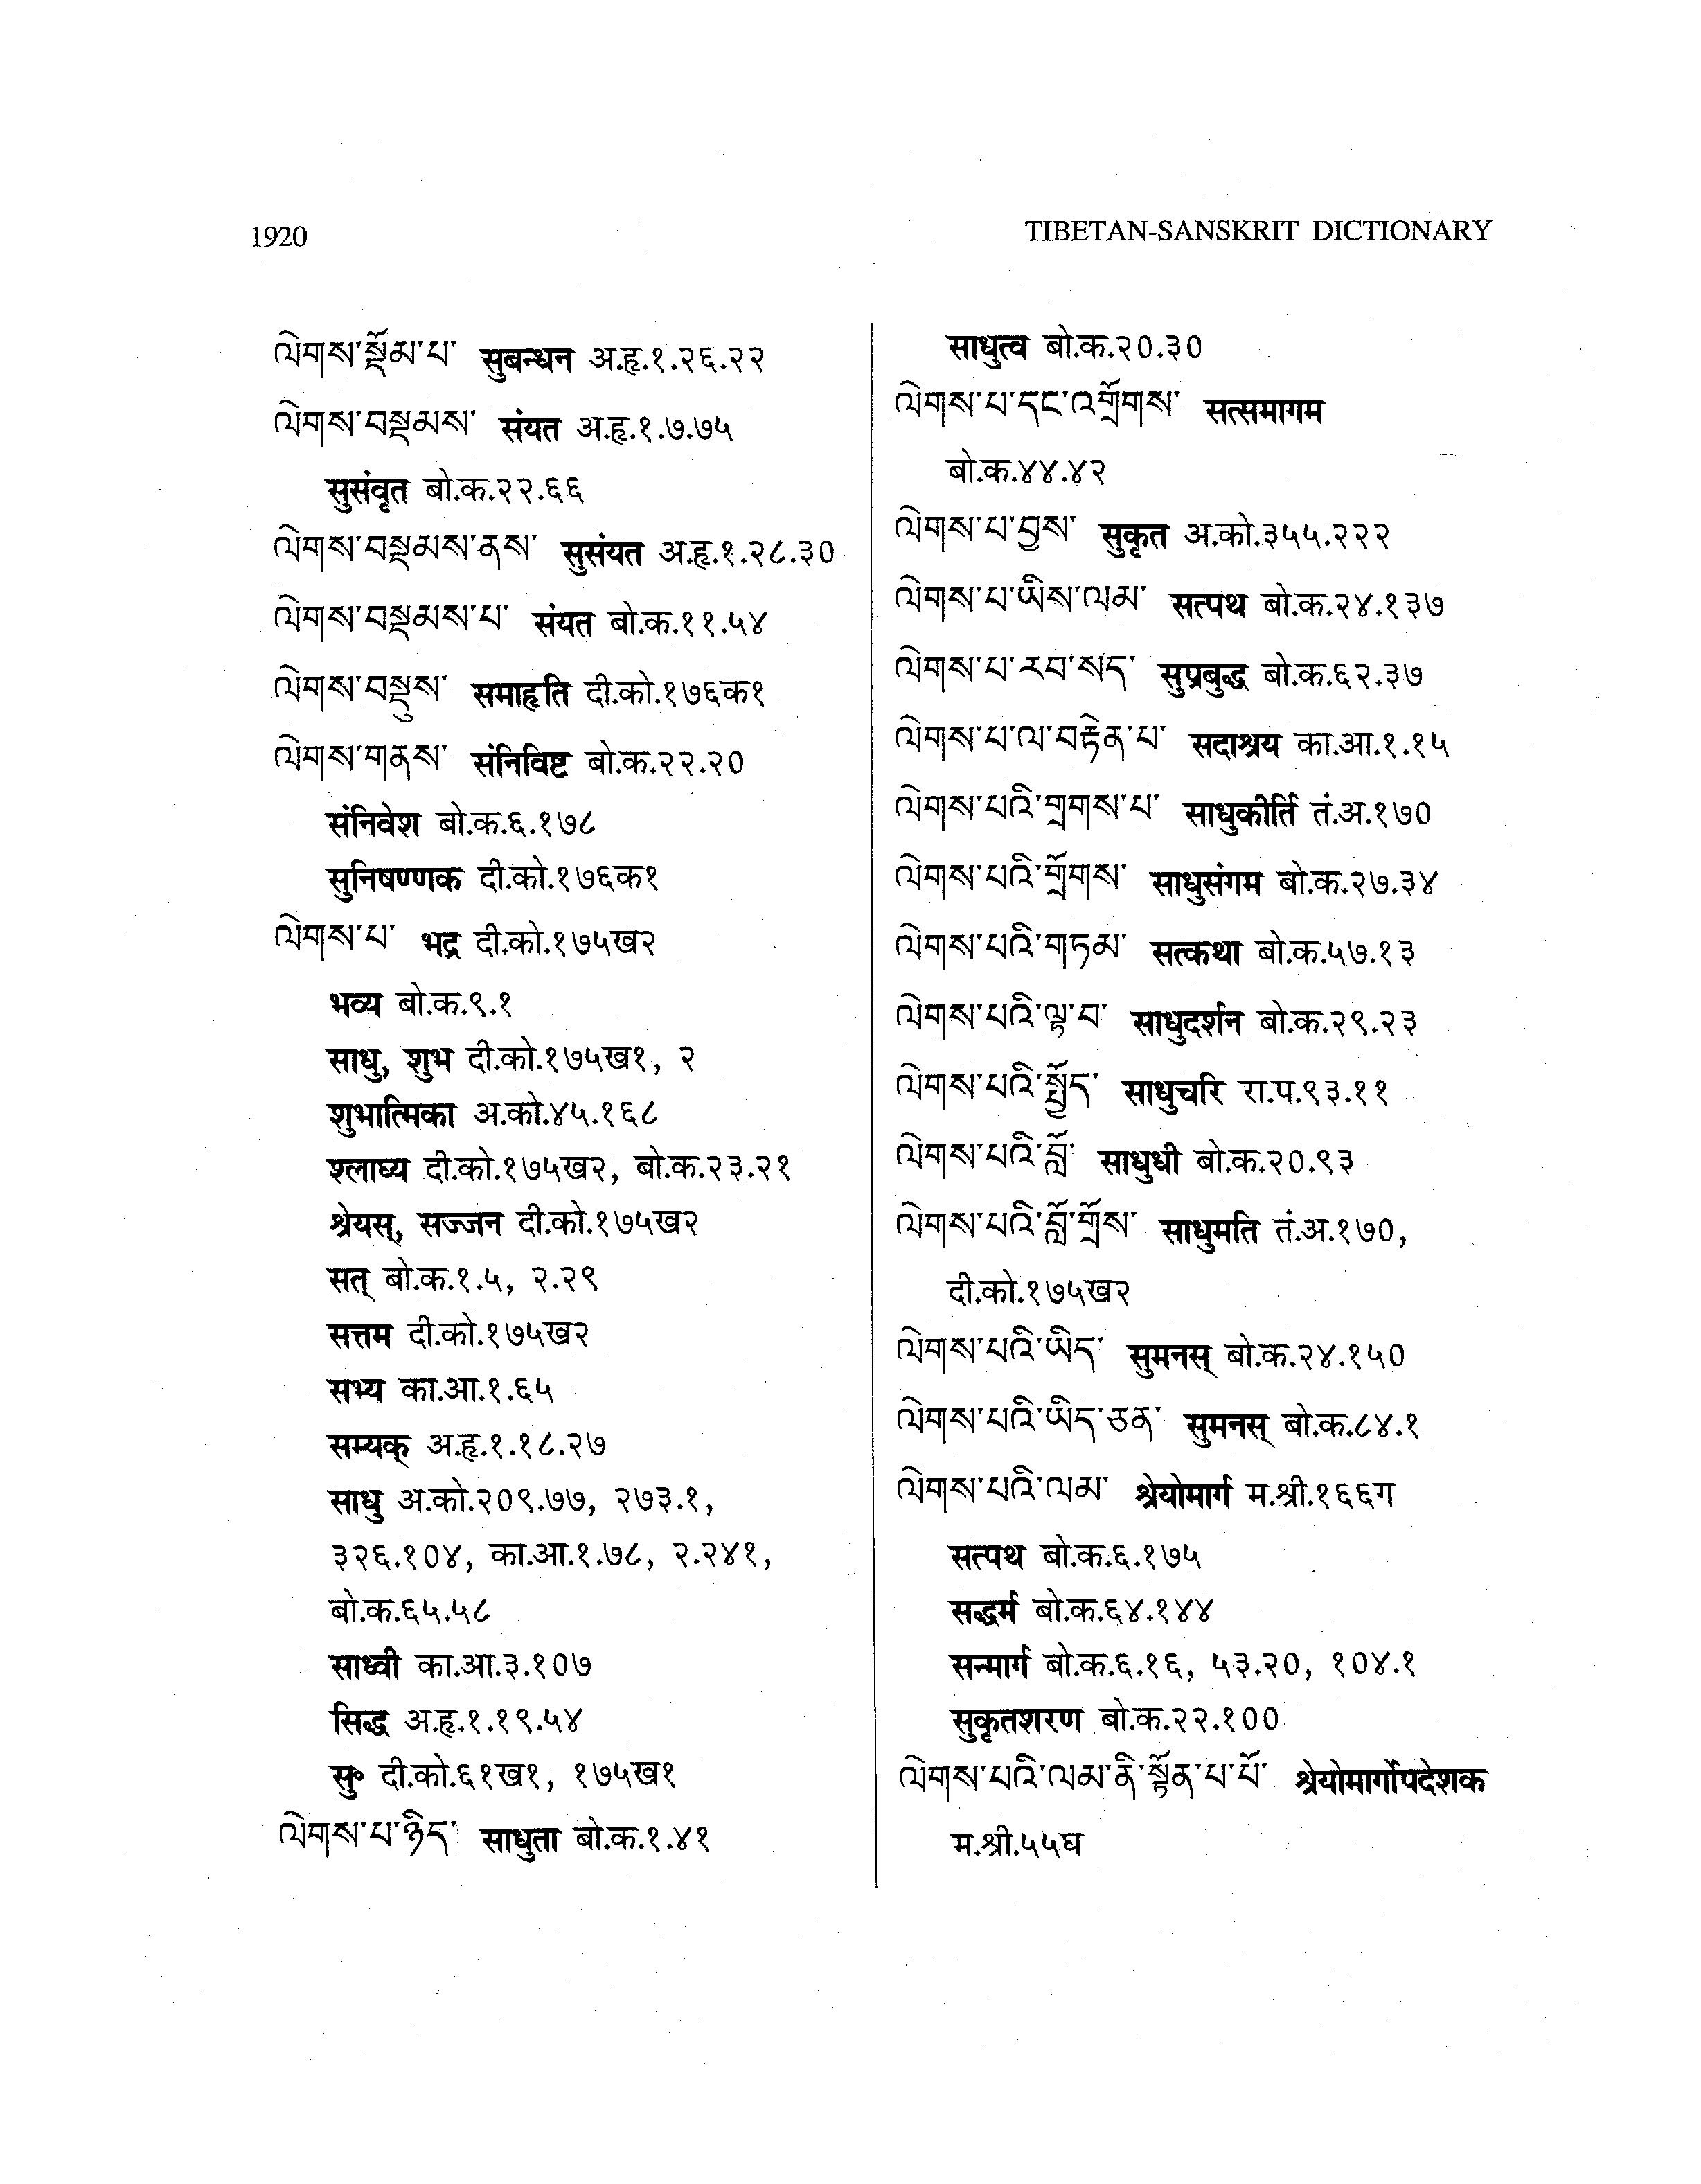 1920
TIBETAN-SANSKRIT DICTIONARY
ལེགས་སྡོམ་པ་ सुबन्धन अ.हृ.१.२६.२२
ལེགས་བསྡམས་ संयत अ.हृ.१.७.७५
सुसंवृत बो.क.२२.६६
ལེགས་བསྡམས་ནས་ सुसंयत अ.हृ.१.२८.३०
ལེགས་བསྡམས་པ་ संयत बो.क.११.५४
ལེགས་བསྡུས་ समाहृति दी.को.१७६क१
ལེགས་གནས་ संनिविष्ट बो.क.२२.२०
संनिवेश बो.क.६.१७८
सुनिषण्णक दी.को.१७६क१
ལེགས་པ་ भद्र दी.को.१७५ख२
भव्य बो.क.९.१
साधु, शुभ दी.को.१७५ख१, २
शुभात्मिका अ.को.४५.१६८
श्लाघ्य दी.को.१७५ख२, बो.क.२३.२१
श्रेयस्, सज्जन दी.को.१७५ख२
सत् बो.क.१.५, २.२९
सत्तम दी.को.१७५ख२
सभ्य का.आ.१.६५
सम्यक् अ.हृ.१.१८.२७
साधु अ.को.२०९.७७, २७३.१,
३२६.१०४, का.आ.१.७८, २.२४१,
बो.क.६५.५८
साध्वी का.आ.३.१०७
सिद्ध अ.हृ.१.१९.५४
सु॰ दी.को.६१ख१, १७५ख१
ལེགས་པ་ཉིད་ साधुता बो.क.१.४१
साधुत्व बो.क.२०.३०
ལེགས་པ་དང་འགྲོགས་ सत्समागम
बो.क.४४.४२
ལེགས་པ་བྱས་ सुकृत अ.को.३५५.२२२
ལེགས་པ་ཡིས་ལམ་ सत्पथ बो.क.२४.१३७
ལེགས་པ་རབ་སད་ सुप्रबुद्ध बो.क.६२.३७
ལེགས་པ་ལ་བརྟེན་པ་ सदाश्रय का.आ.१.१५
ལེགས་པའི་གྲགས་པ་ साधुकीर्ति तं.अ.१७०
ལེགས་པའི་གྲོགས་ साधुसंगम बो.क.२७.३४
ལེགས་པའི་གཏམ་ सत्कथा बो.क.५७.१३
ལེགས་པའི་ལྟ་བ་ साधुदर्शन बो.क.२९.२३
ལེགས་པའི་སྤྱོད་ साधुचरि रा.प.९३.११
ལེགས་པའི་བློ་ साधुधी बो.क.२०.९३
ལེགས་པའི་བློ་གྲོས་ साधुमति तं.अ.१७०,
दी.को.१७५ख२
ལེགས་པའི་ཡིད་ सुमनस् बो.क.२४.१५०
ལེགས་པའི་ཡིད་ཅན་ सुमनस् बो.क.८४.१
ལེགས་པའི་ལམ་ श्रेयोमार्ग म.श्री.१६६ग
सत्पथ बो.क.६.१७५
सद्धर्म बो.क.६४.१४४
सन्मार्ग बो.क.६.१६, ५३.२०, १०४.१
सुकृतशरण बो.क.२२.१००
ལེགས་པའི་ལམ་ནི་སྟོན་པ་པོ་ श्रेयोमार्गोपदेशक
म.श्री.५५घ